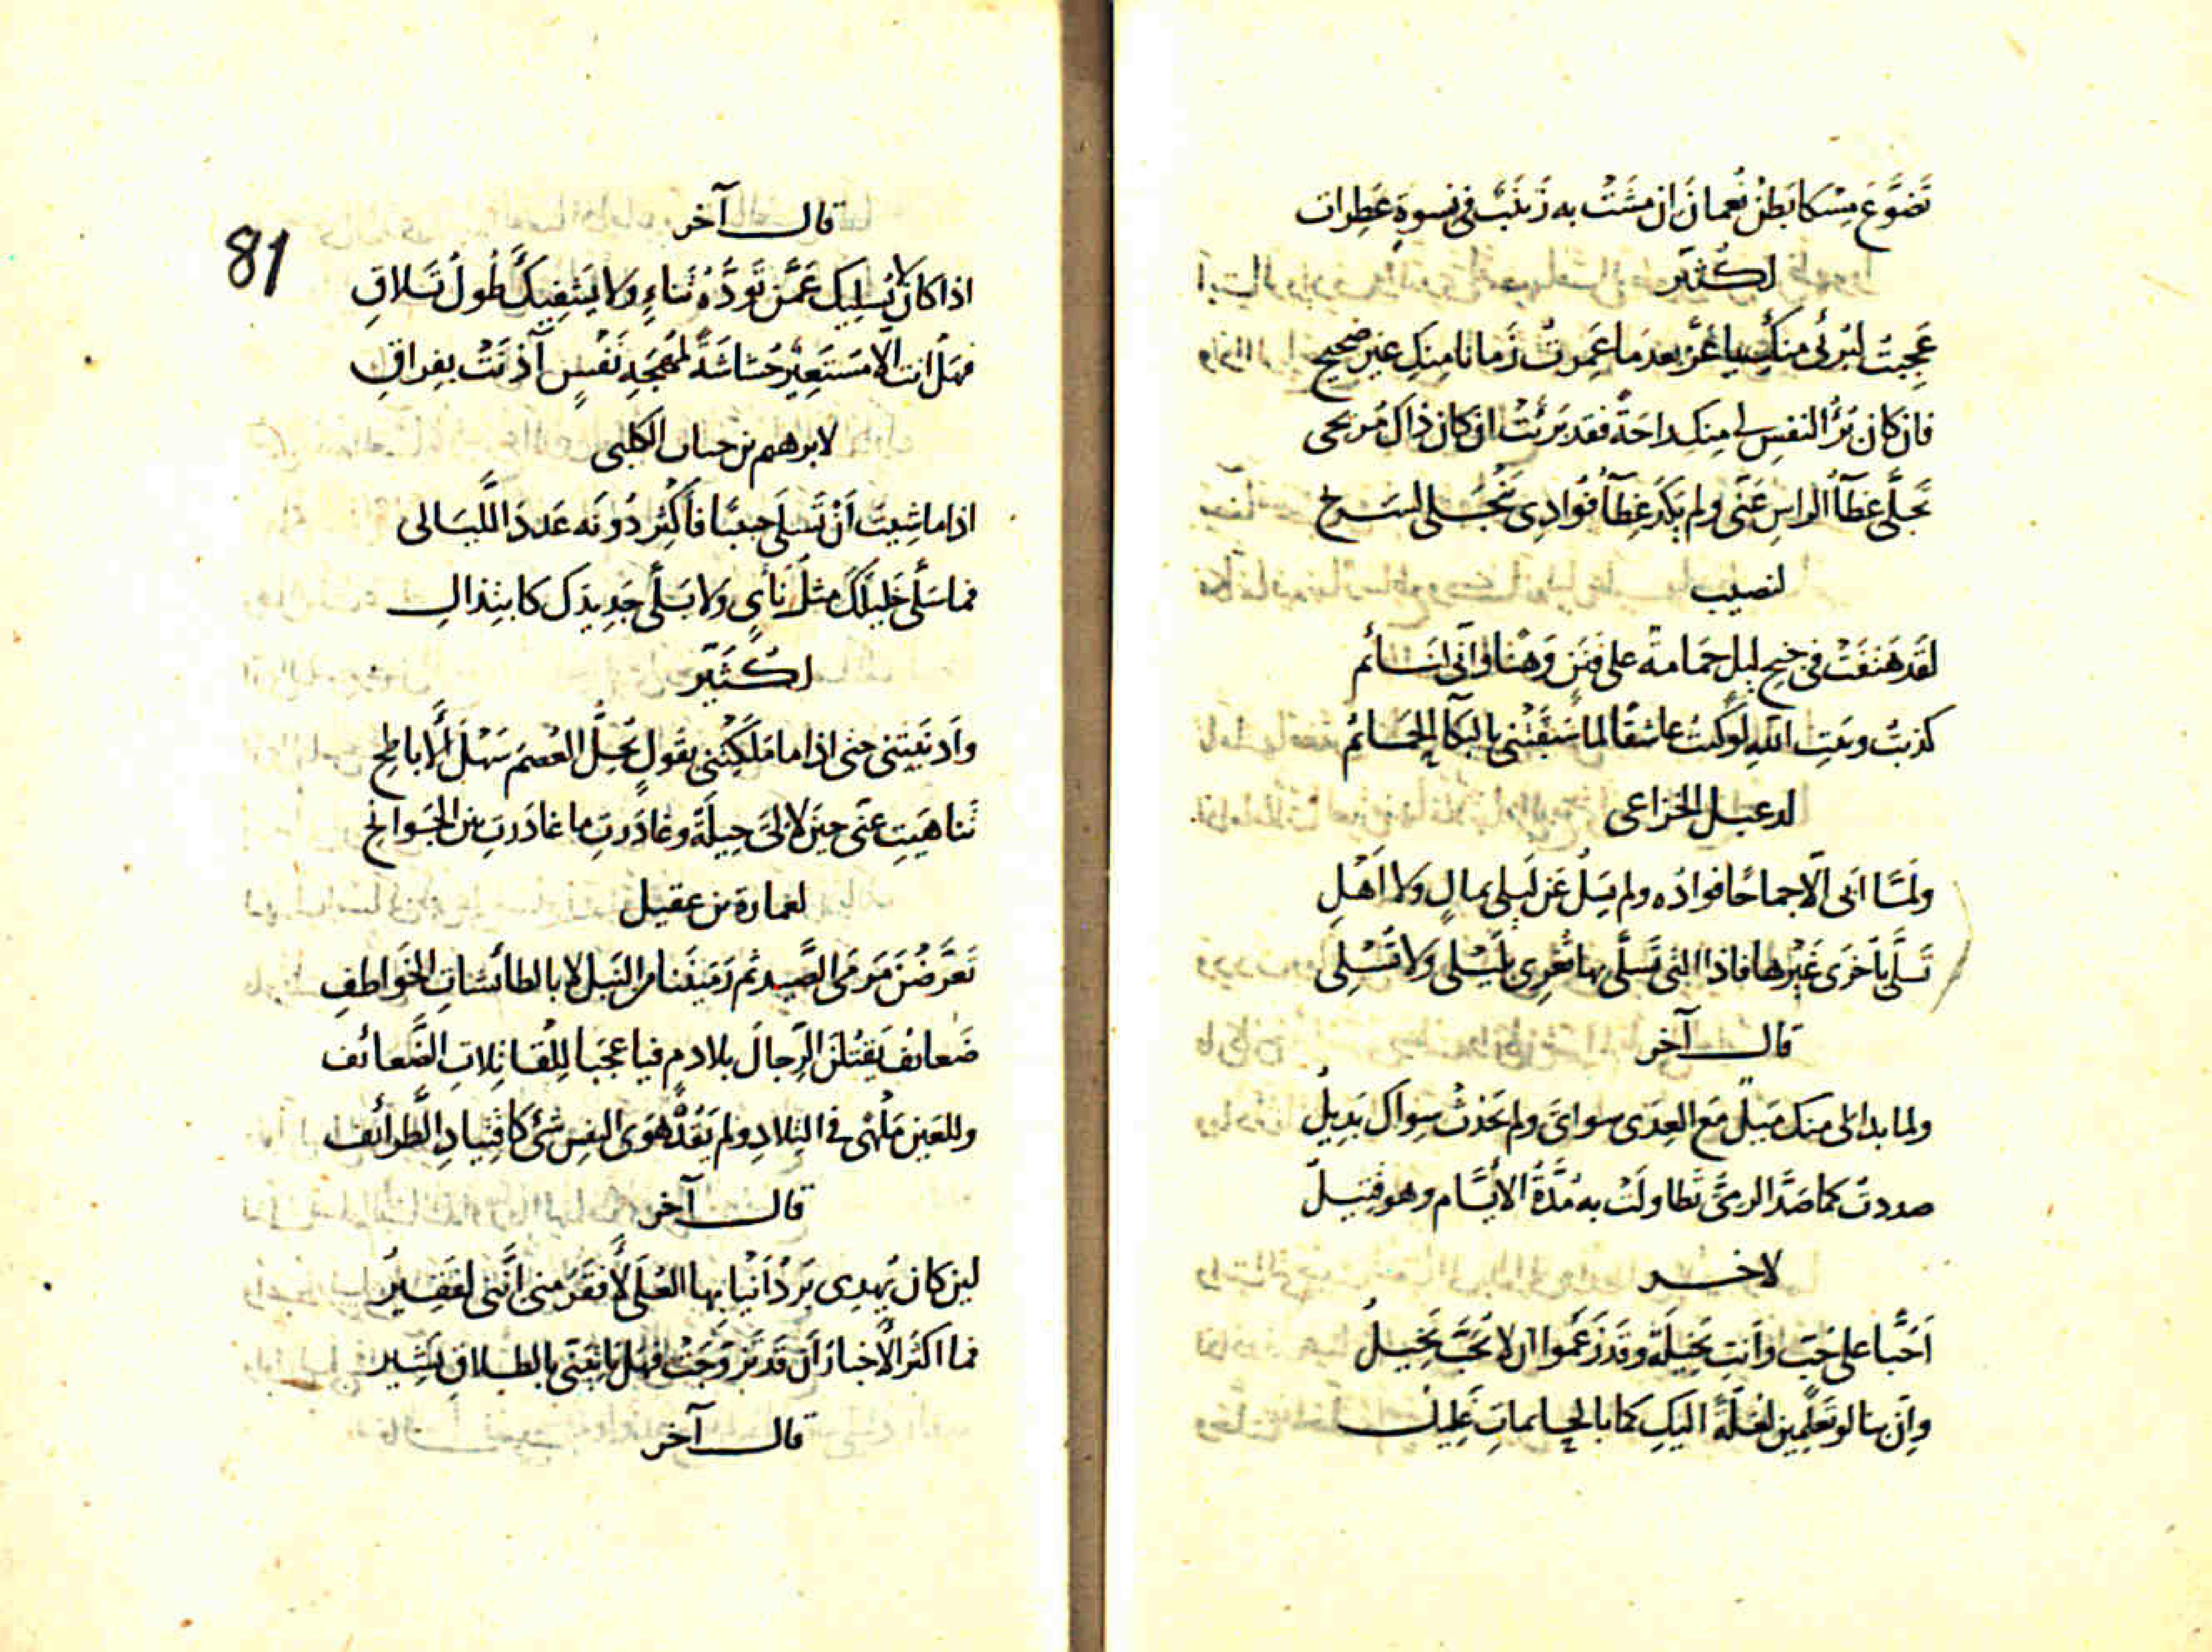 تَضَوَّعَ مِسْكا بَطنُ نُعمانَ ان مشَتْ به زَينَبٌ فى نِسوةٍ عَطِرات
لكُثَيّر
عَجِبتُ لبُرئى منكِ ياعَزّ بعدَما عَمِرتُ زَمانا منكِ غير صحيح
فان كان بُرْءُ النفسِ لى منك راحَةً فقد بَرِئَتْ ان كان ذاكَ مُريحى
تجلَّى غطَآءُ الراسِ عَنّى ولم يَكَد غِطآءُ فُؤادِى يَنْجَلى لسَريح
لنصيب
لقَد هَتفَتْ فى جنح ليل حمَامة على فنَنٍ وَهنًا وانّى لنَائم
كذبتُ وبَيتِ اللهِ لوكنتُ عاشقًا لما سَبقَتْنى بالبكآءِ الحَمائمُ
لدعبل الخزاعى
ولمّا ابَى الّا جماحًا فوادُه ولم يَسْلُ عَن لَيلى بمالٍ ولا اَهْلِ
تسَلَّى باُخرَى غَيْرِها فاذا التى تَسلَّى بها تُغرِى بلَيْلى وَلا تُسْلِى
قال آخر
ولما بدا لى منك مَيلٌ مَع العِدَى سواىَ ولم يَحْدثْ سِواكَ بَدِيلُ
صددتُ كما صَدَّ الرمىُّ تَطاولَتْ به مُدّةُ الايّام وهو قتيلُ
لاخر
اَحُبّا على حُبّ وَاَنتِ بَخِيلَةٌ وقَد زَعَموا ان لا يُحَبَّ بَخِيلُ
وإنّ بنا لوتعَلمِين لغُلّةً اليكِ كما بالحائماتِ غليل
81
قال آخر
اذا كانَ لا يُسلِيكَ عَمَّن تَوَدُّهُ تَناءٍ ولا يَشفِيكَ طُولُ تَلاقِ
فهَلْ انت الّا مسَتَعِيرٌ حُشاشَةً لمُهجَةِ نَفْسٍ آذنَتْ بفِراقِ
لابرهيم بن حسان الكلبى
اذا ما شِيتَ اَنْ تَسلَى حبيبًا فاَكثِر دُونَه عَددَ اللَّيالى
فما سَلَّى خَلِيلَكَ مثلُ نَأىٍ ولا بَلَّى جَدِيدَك كابتِذالِ
لكُثَيّر
واَدنَيتنى حتى اذا ما مَلَكتِنى بقَولٍ يُحِلُّ العُصمَ سَهْلَ الاَباطحِ
تَناهَيتِ عَنّى حِينَ لا لىَ حِيلَةٌ وغادَرتِ ما غادَرتِ بين الجَوانح
لعمارة بن عقيل
تَعَرَّضْنَ مَرمَى الصَّيد ثم رَمَينَنا من النَبل لا بالطائشاتِ الخَواطفِ
ضَعائفُ يَقتُلنَ الرِّجالَ بلا دمٍ فيا عجَبا لِلقَاتِلاتِ الضَّعائف
وللعَينِ مَلْهًى فى التِلادِ ولم يَقُدْ هَوَى النفس شَئ كاقتِيادِ الطَّرائف
قال آخر
لين كان يُهدِى بَرْدُ اَنيابها العُلَى لاَفقَرَ منى اِنّنى لفَقيرُ
فما اكثَرُ الاَخبارَ اَن قد تَزوَّجَتْ فهَل يَاتِيَنّى بالطلاقِ بَشيرُ
قال آخر